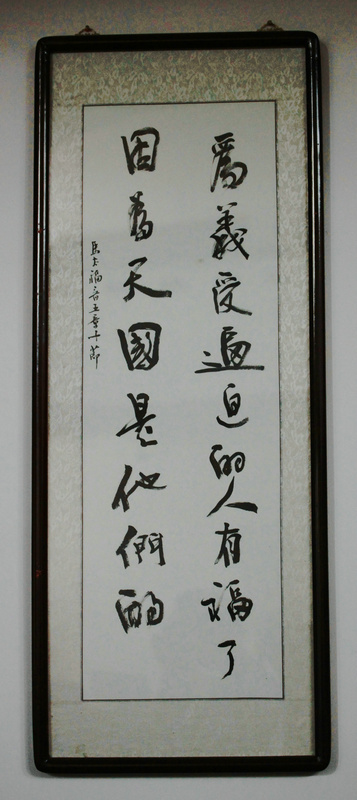 為義受逼迫的人有福了
因為天國是他們的
馬太福音五章十節